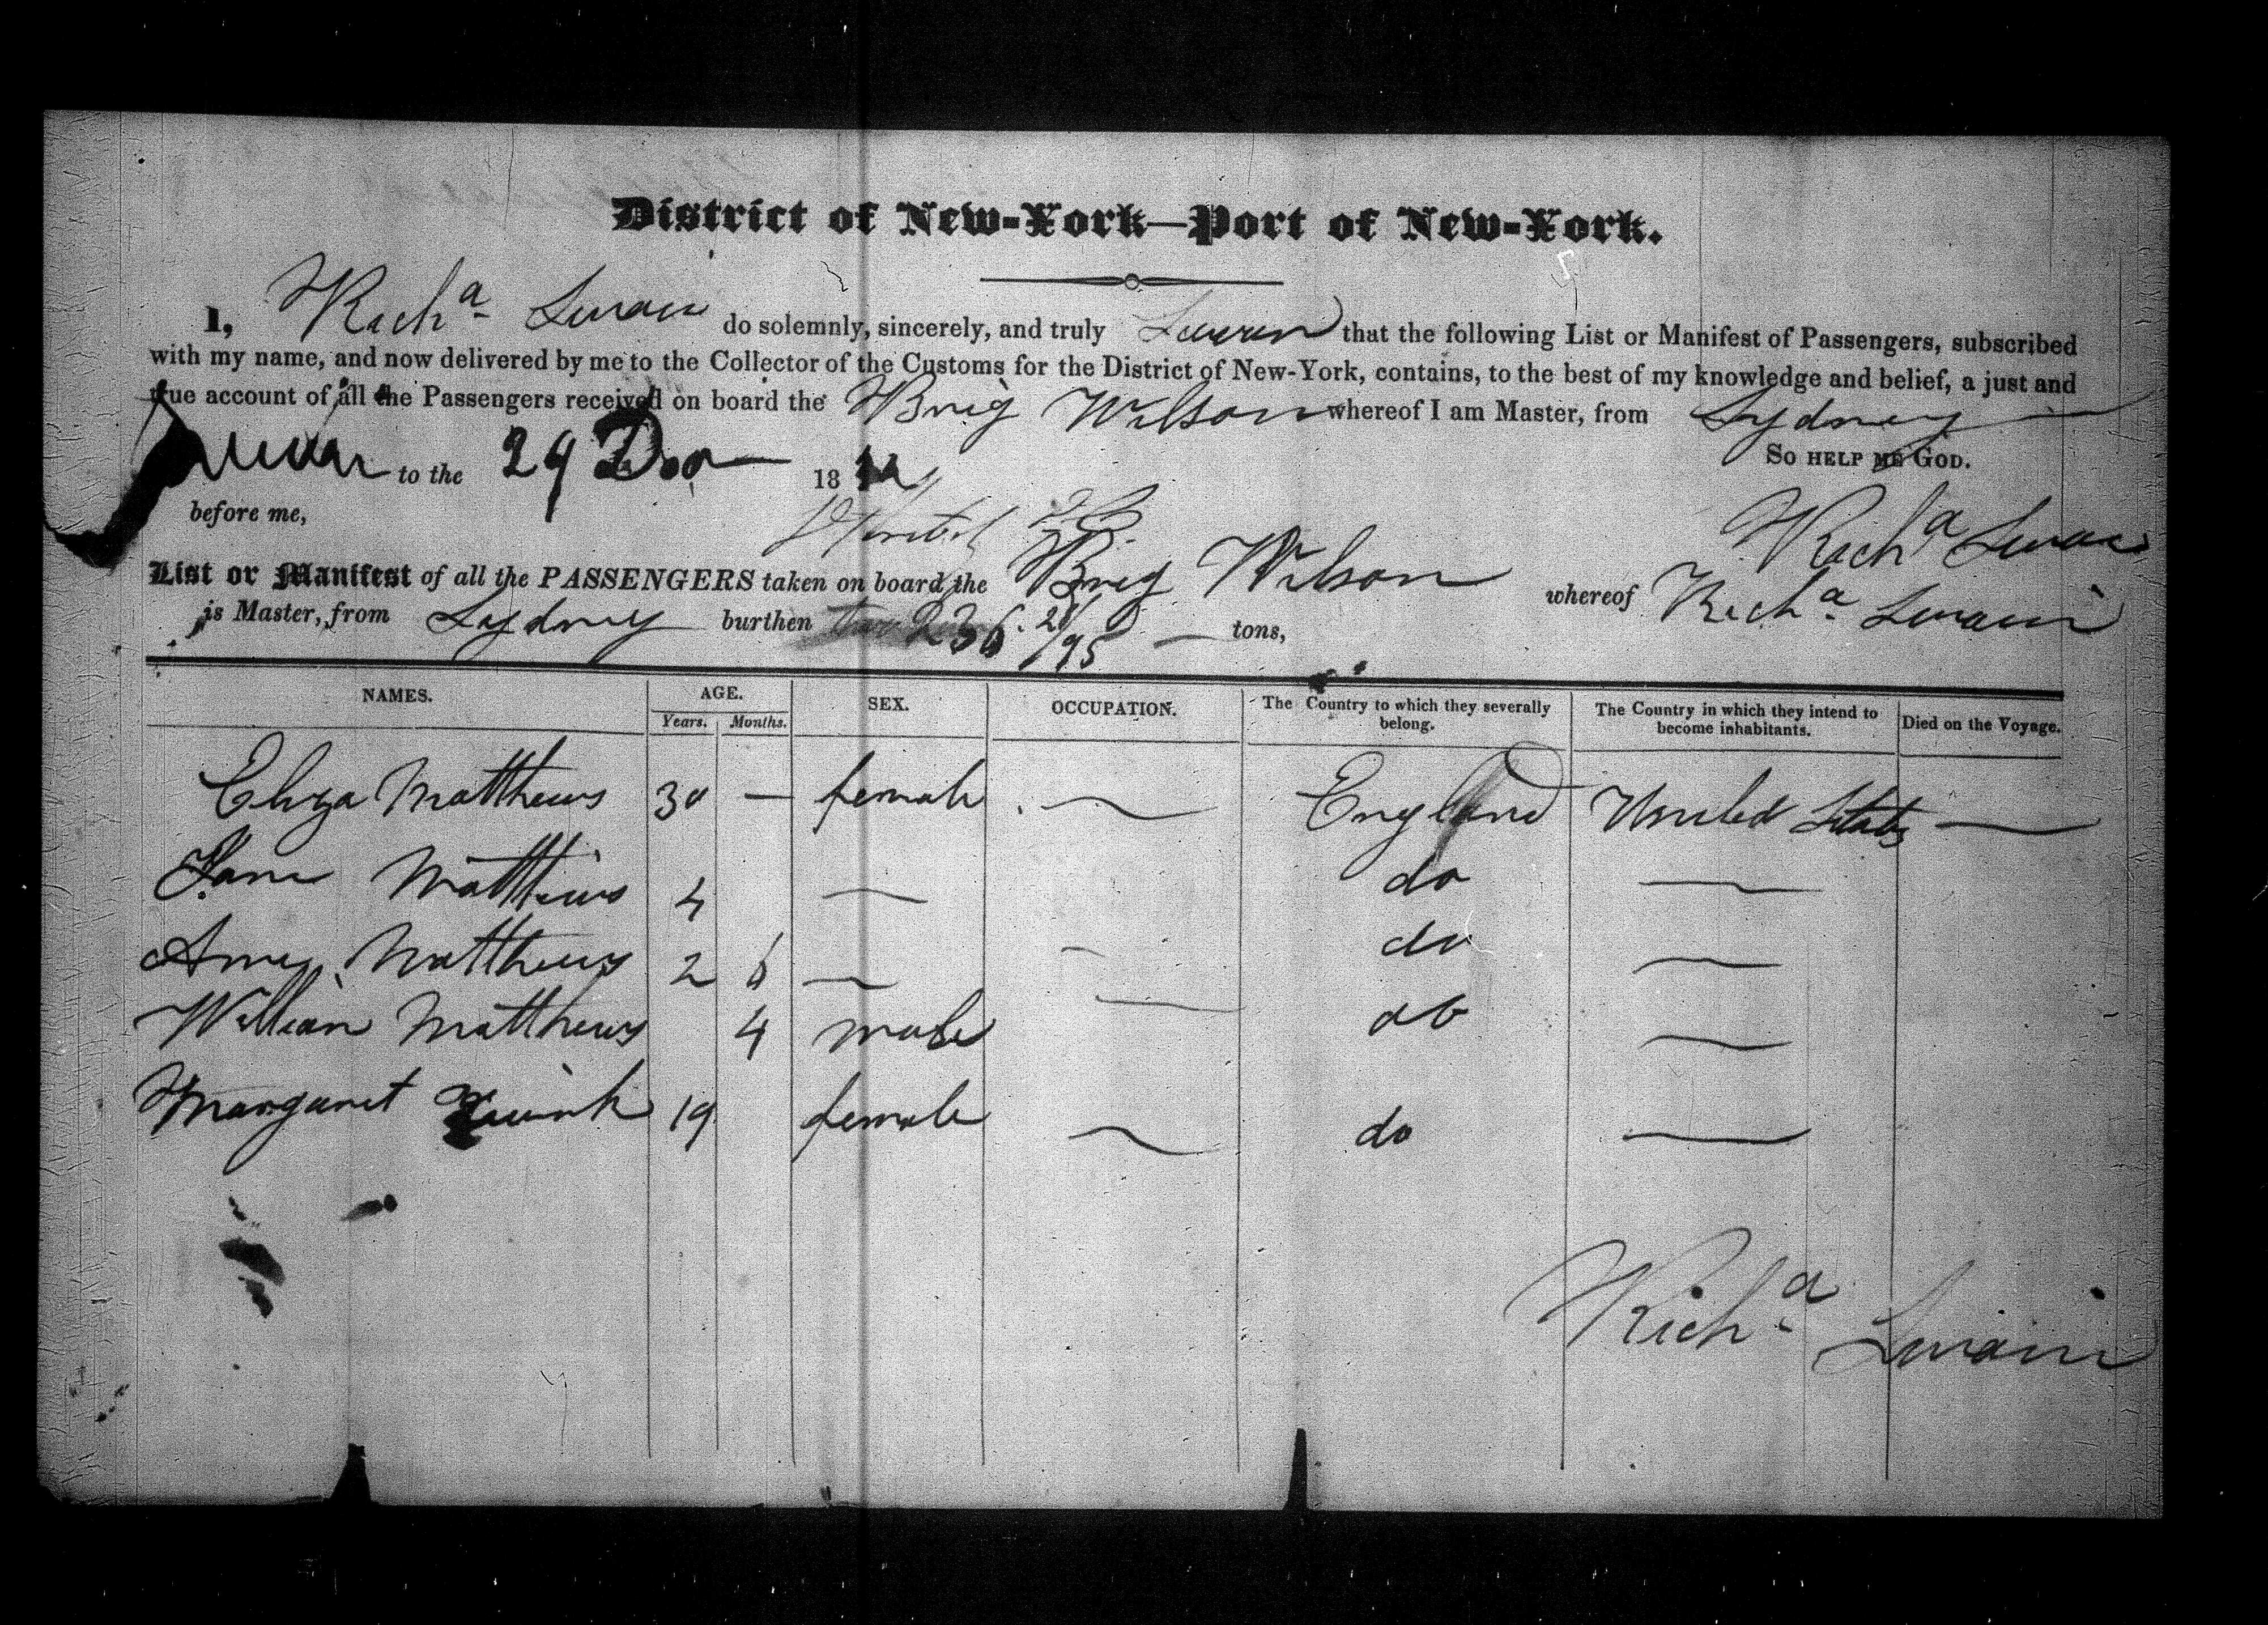 District of New-York—Port of New-York.
I, Richd Swain do solemnly, sincerely, and truly Swear that the following List or Manifest of Passengers, subscribed
with my name, and now delivered by me to the Collector of the Customs for the District of New-York, contains, to the best of my knowledge and belief, a just and
true account of all the Passengers received on board the Brig Wilson whereof I am Master, from Sydney
So HELP ME GOD.
to the 29 18
before me,
Richd Swain
List or Manifest of all the PASSENGERS taken on board the Brig Wilson whereof Richd Swain
is Master, from Sydney burthen 236 /95 tons,
NAMES. AGE. SEX. OCCUPATION. The Country to which they severally belong. The Country in which they intend to become inhabitants. Died on the Voyage.
Years. Months.
Eliza Matthews 30 — female — England United States —
Jane Matthews 4 — do —
Amy Matthews 2 6 — — do —
William Matthews 4 male — do —
Margaret 19 female — do —
Richd Swain